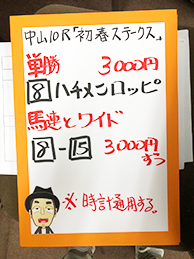 中山10R「初春ステークス」
単勝 3000円
8 ハチメンロッピ
馬連とワイド
8-15 3000円
ずつ
※時計通用する。